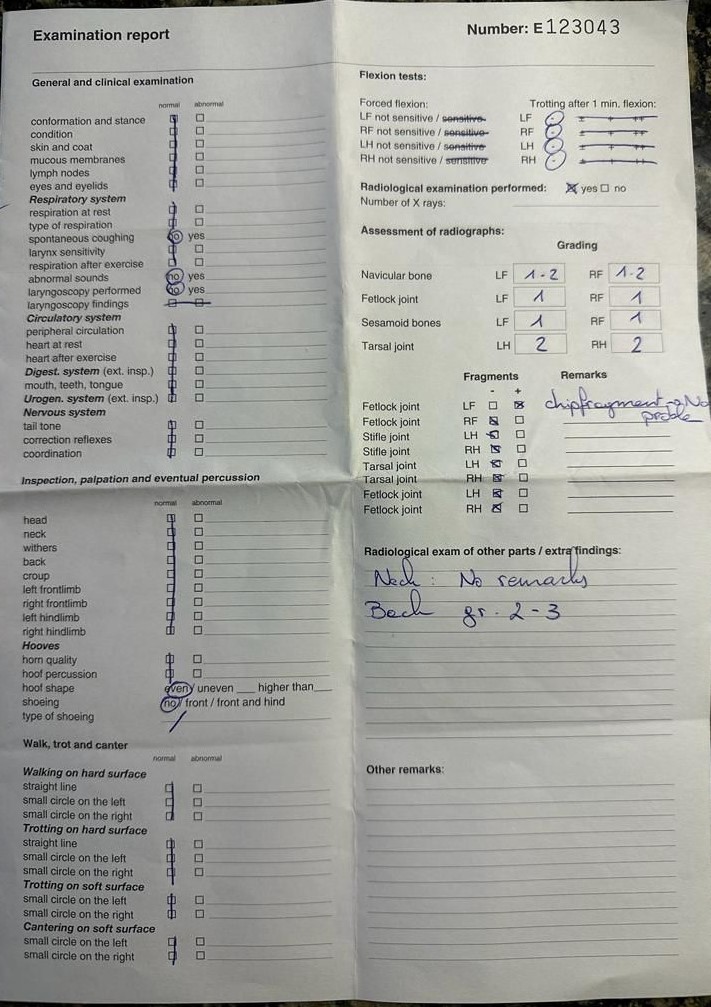 Examination report
Number: E123043
General and clinical examination
normal abnormal
conformation and stance
condition
skin and coat
mucous membranes
lymph nodes
eyes and eyelids
Respiratory system
respiration at rest
type of respiration
spontaneous coughing no yes
larynx sensitivity
respiration after exercise
abnormal sounds no yes
laryngoscopy performed no yes
laryngoscopy findings
Circulatory system
peripheral circulation
heart at rest
heart after exercise
Digest. system (ext. insp.)
mouth, teeth, tongue
Urogen. system (ext. insp.)
Nervous system
tail tone
correction reflexes
coordination
Inspection, palpation and eventual percussion
normal abnormal
head
neck
withers
back
croup
left frontlimb
right frontlimb
left hindlimb
right hindlimb
Hooves
horn quality
hoof percussion
hoof shape even / uneven ___ higher than___
shoeing no / front / front and hind
type of shoeing /
Walk, trot and canter
normal abnormal
Walking on hard surface
straight line
small circle on the left
small circle on the right
Trotting on hard surface
straight line
small circle on the left
small circle on the right
Trotting on soft surface
small circle on the left
small circle on the right
Cantering on soft surface
small circle on the left
small circle on the right
Flexion tests:
Forced flexion: Trotting after 1 min. flexion:
LF not sensitive / sensitive LF - ± + ++
RF not sensitive / sensitive RF - ± + ++
LH not sensitive / sensitive LH - ± + ++
RH not sensitive / sensitive RH - ± + ++
Radiological examination performed: yes no
Number of X rays:
Assessment of radiographs:
Grading
Navicular bone LF 1-2 RF 1-2
Fetlock joint LF 1 RF 1
Sesamoid bones LF 1 RF 1
Tarsal joint LH 2 RH 2
Fragments Remarks
- +
Fetlock joint LF chipfragment → No
Fetlock joint RF
Stifle joint LH
Stifle joint RH
Tarsal joint LH
Tarsal joint RH
Fetlock joint LH
Fetlock joint RH
Radiological exam of other parts / extra findings:
Neck: No remarks
Back gr. 2-3
Other remarks: